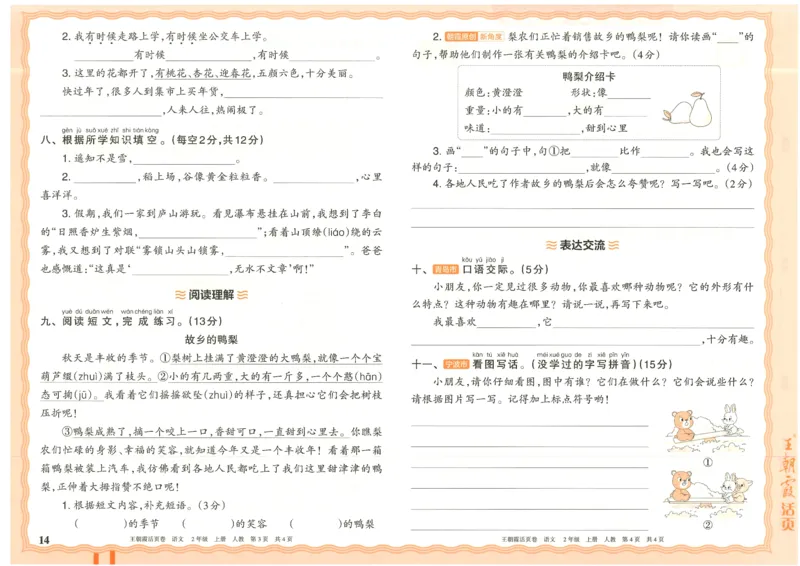 2. 我有时候走路上学,有时候坐公交车上学。
有时候,有时候。
3. 这里的花都开了,有桃花、杏花、迎春花,五颜六色,十分美丽。
快过年了,很多人到集市上买年货,
,人来人往,热闹极了。
gēn jù suǒ xué zhī shi tián kòng
八、根据所学知识填空。(每空2分,共12分)
1. 遥知不是雪,。
2. ,稻上场,谷像黄金粒粒香。,心里
喜洋洋。
3. 假期,我们一家到庐山游玩。看见瀑布悬挂在山前,我想到了李白
的“日照香炉生紫烟,”;看着山顶缭(liáo)绕的云
雾,我又想到了对联“雾锁山头山锁雾,”。爸爸
也感慨道:“这真是‘,无水不文章’啊!”
阅读理解
yuè dú duǎn wén wán chéng liàn xí
九、阅读短文,完成练习。(13分)
故乡的鸭梨
秋天是丰收的季节。①梨树上挂满了黄澄澄的大鸭梨,就像一个个宝
葫芦缀(zhuì)满了枝头。②小的有几两重,大的有一斤多,一个个憨(hān)
态可掬(jū)。我看着它们摇摇欲坠(zhuì)的样子,还真担心它们会把树枝
压折呢!
③鸭梨成熟了,摘一个咬上一口,香甜可口,一直甜到心里去。你瞧梨
农们忙碌的身影、幸福的笑容,就知道今年又是一个丰收年!看着那一箱
箱鸭梨被装上汽车,我仿佛看到各地人民都吃上了我们这里甜津津的鸭
梨,正伸着大拇指赞不绝口呢!
1. 根据短文内容,补充短语。(3分)
( )的季节 ( )的笑容 ( )的鸭梨
14
王朝霞活页卷 语文 2年级 上册 人教 第3页 共4页
2. 朝霞原创 新角度 梨农们正忙着销售故乡的鸭梨呢!请你读画“ ”的
句子,帮助他们制作一张有关鸭梨的介绍卡吧。(4分)
鸭梨介绍卡
颜色:黄澄澄 形状:像
重量:小的有,大的有
味道:,甜到心里
3. 画“ ”的句子中,句①把比作。我也会写这
样的句子:,就像。(4分)
4. 各地人民吃了作者故乡的鸭梨后会怎么夸赞呢?写一写吧。(2分)
表达交流
kǒu yǔ jiāo jì
十、青岛市 口语交际。(5分)
小朋友,你一定见过很多动物,你最喜欢哪种动物呢?它的外形有什
么特点?这种动物有趣在哪里?请说一说,再写下来吧。
我最喜欢,它
,十分有趣。
kàn tú xiě huà méi xué guo de zì xiě pīn yīn
十一、宁波市 看图写话。(没学过的字写拼音)(15分)
小朋友,请你仔细看图,图中有谁?它们在做什么?它们会说些什么?
请根据图片写一写。记得加上标点符号哟!
①
②
王朝霞活页卷 语文 2年级 上册 人教 第4页 共4页
王朝霞活页